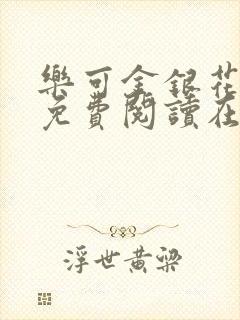 樂可金銀花
免費閱讀在
浮世黃梁